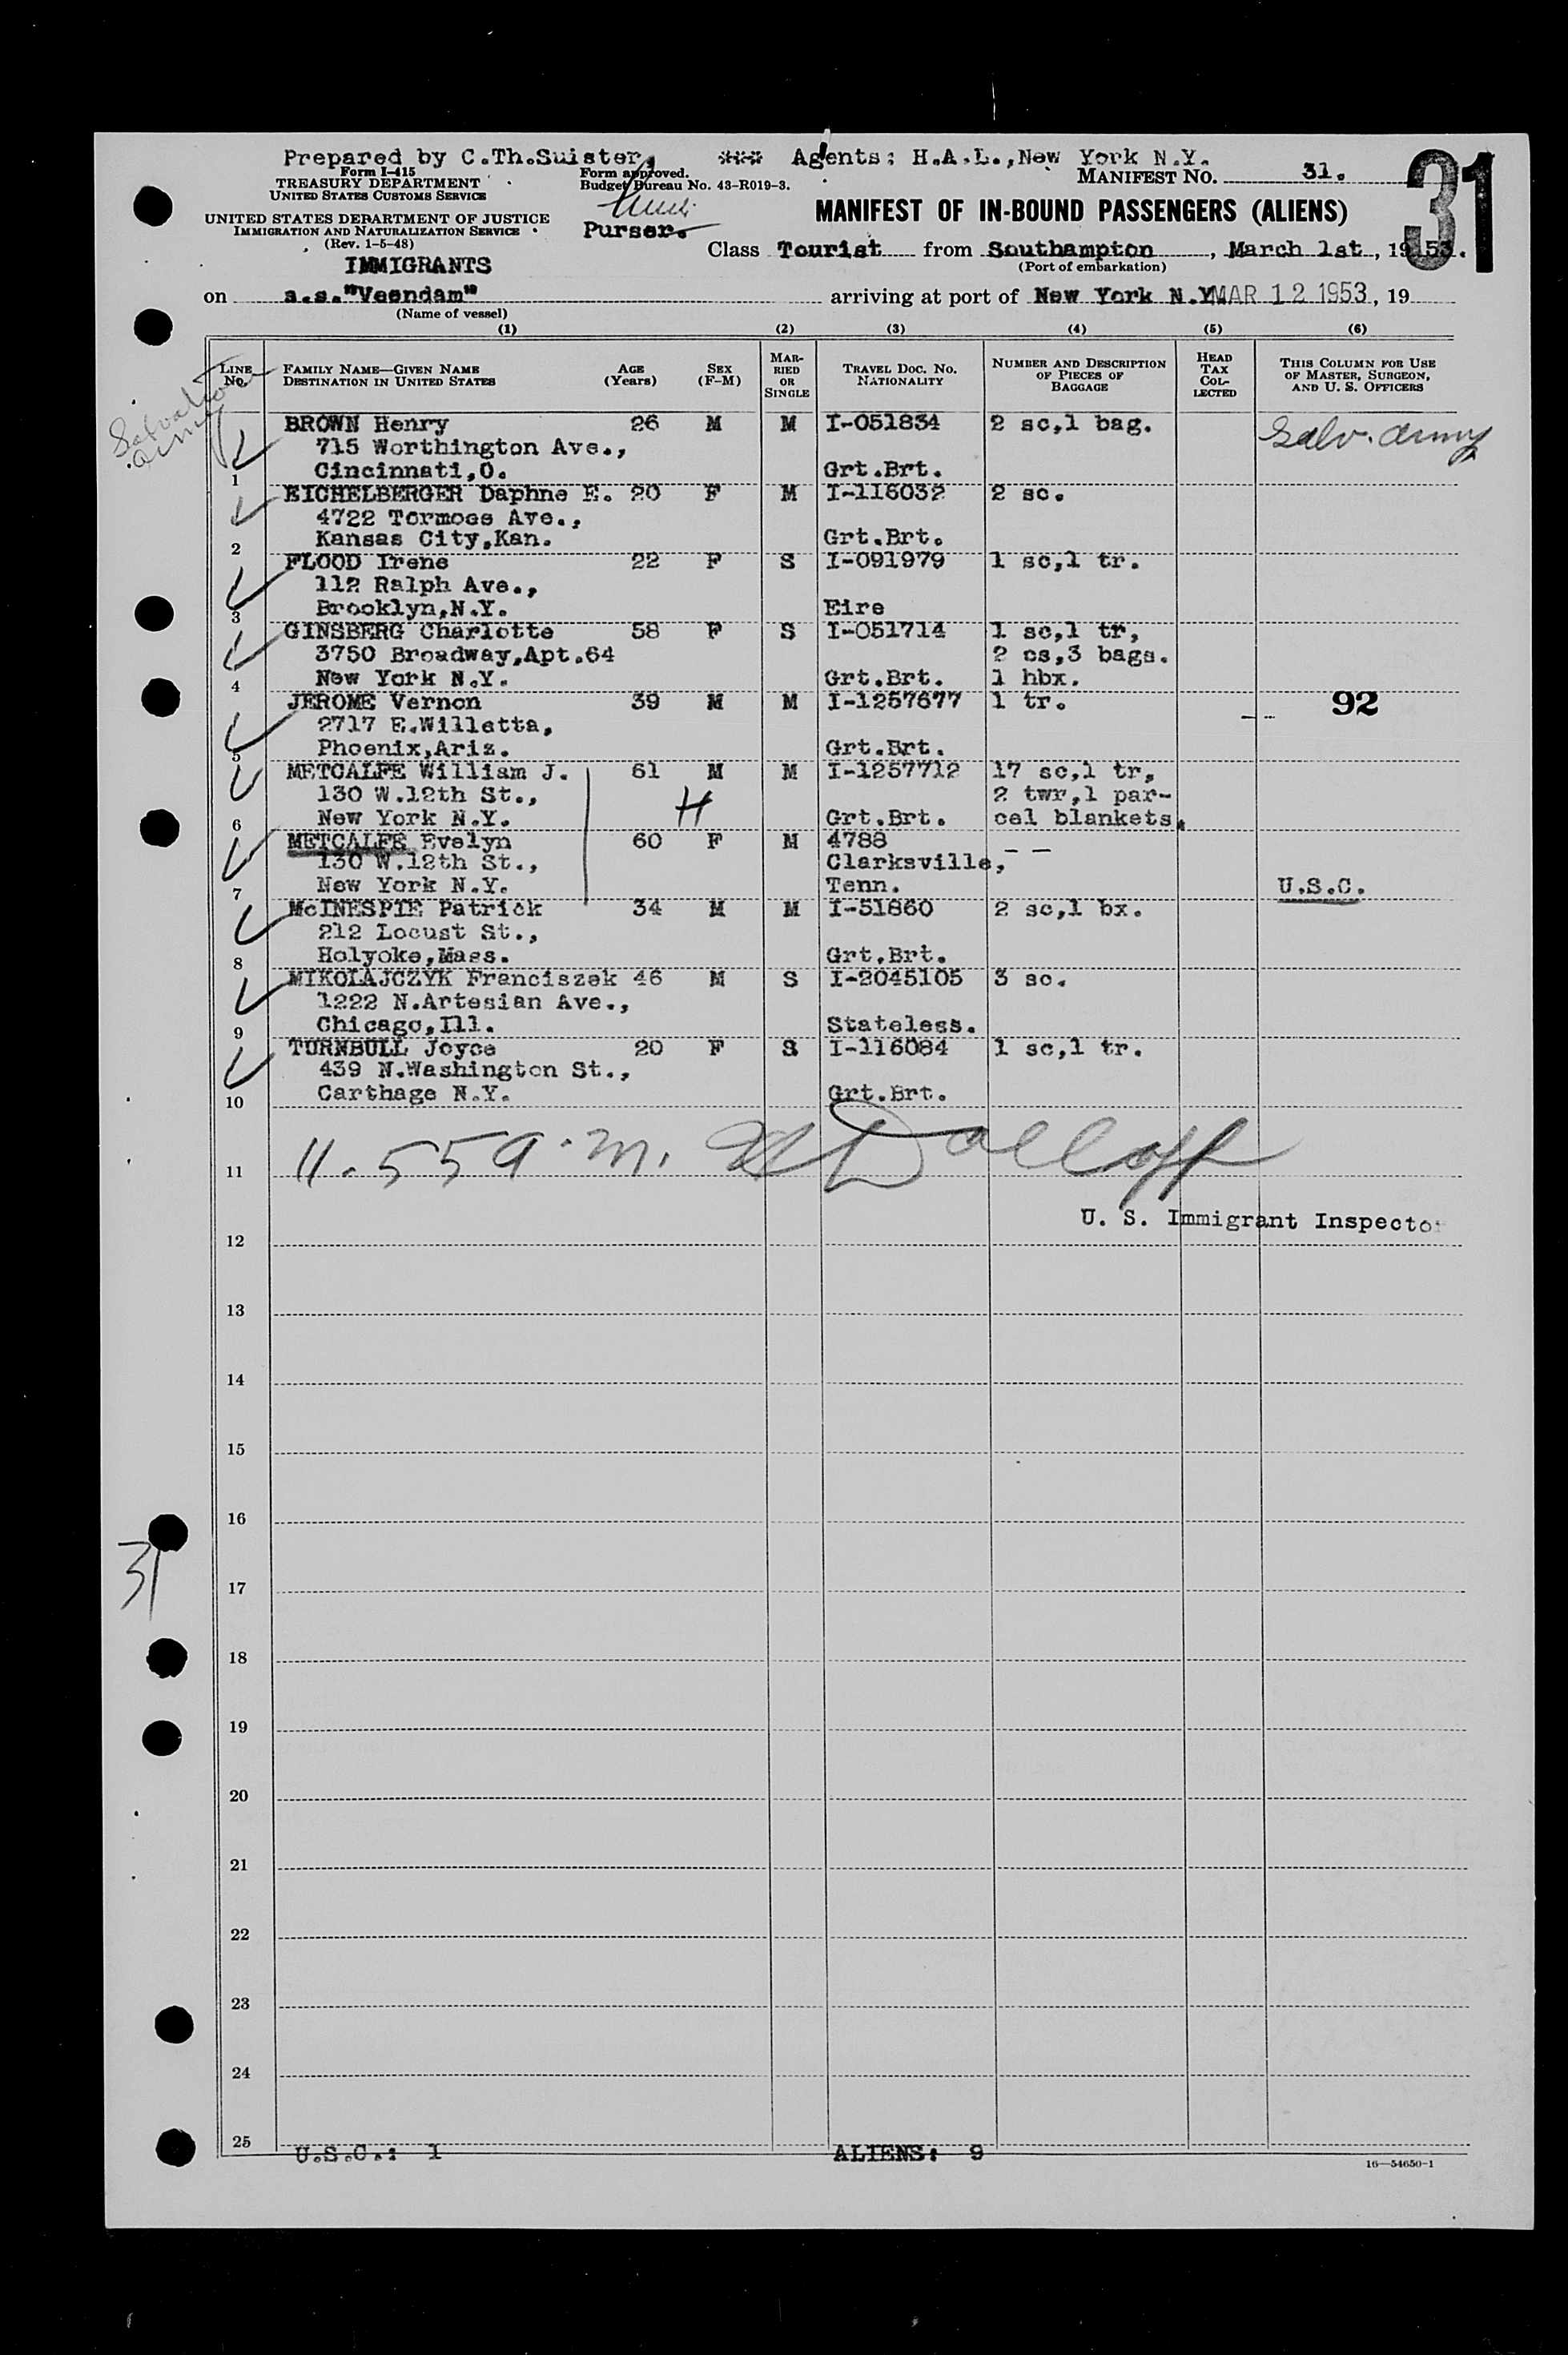 Prepared by C.Th.Suister, *** Agents: H.A.L.,New York N.Y.
Form I-415
TREASURY DEPARTMENT
UNITED STATES CUSTOMS SERVICE
Form approved.
Budget Bureau No. 43-R019-3.
MANIFEST NO. 31.
31
UNITED STATES DEPARTMENT OF JUSTICE
IMMIGRATION AND NATURALIZATION SERVICE
(Rev. 1-5-48)
Purser.
MANIFEST OF IN-BOUND PASSENGERS (ALIENS)
IMMIGRANTS
Class Tourist from Southampton, March 1st, 1953.
(Port of embarkation)
on s.s."Veendam" arriving at port of New York N.Y. MAR 12 1953, 19
(Name of vessel)
(1) (2) (3) (4) (5) (6)
LINE NO. FAMILY NAME—GIVEN NAME DESTINATION IN UNITED STATES AGE (Years) SEX (F-M) MARRIED OR SINGLE TRAVEL DOC. NO. NATIONALITY NUMBER AND DESCRIPTION OF PIECES OF BAGGAGE HEAD TAX COLLECTED THIS COLUMN FOR USE OF MASTER, SURGEON, AND U. S. OFFICERS
Salvation Army
BROWN Henry 26 M M I-051834 2 sc,1 bag. Salv. Army
715 Worthington Ave.,
1 Cincinnati,O. Grt.Brt.
EICHELBERGER Daphne E. 20 F M I-116032 2 sc.
4722 Tormoes Ave.,
2 Kansas City,Kan. Grt.Brt.
FLOOD Irene 22 F S I-091979 1 sc,1 tr.
112 Ralph Ave.,
3 Brooklyn,N.Y. Eire
GINSBERG Charlotte 58 F S I-051714 1 sc,1 tr,
3750 Broadway,Apt.64 2 cs,3 bags.
4 New York N.Y. Grt.Brt. 1 hbx.
JEROME Vernon 39 M M I-1257677 1 tr. 92
2717 E.Willetta,
5 Phoenix,Ariz. Grt.Brt.
METCALFE William J. 61 M M I-1257712 17 sc,1 tr,
130 W.12th St., H 2 twr,1 par-
6 New York N.Y. Grt.Brt. cel blankets.
METCALFE Evelyn 60 F M 4788 - -
130 W.12th St., Clarksville,
7 New York N.Y. Tenn. U.S.C.
McINESPIE Patrick 34 M M I-51860 2 sc,1 bx.
212 Locust St.,
8 Holyoke,Mass. Grt.Brt.
MIKOLAJCZYK Franciszek 46 M S I-2045105 3 sc.
1222 N.Artesian Ave.,
9 Chicago,Ill. Stateless.
TURNBULL Joyce 20 F S I-116084 1 sc,1 tr.
439 N.Washington St.,
10 Carthage N.Y. Grt.Brt.
11 11.55 a.m.
U. S. Immigrant Inspector
12
13
14
15
16
31
17
18
19
20
21
22
23
24
25
U.S.C.: 1 ALIENS: 9
16—54650-1